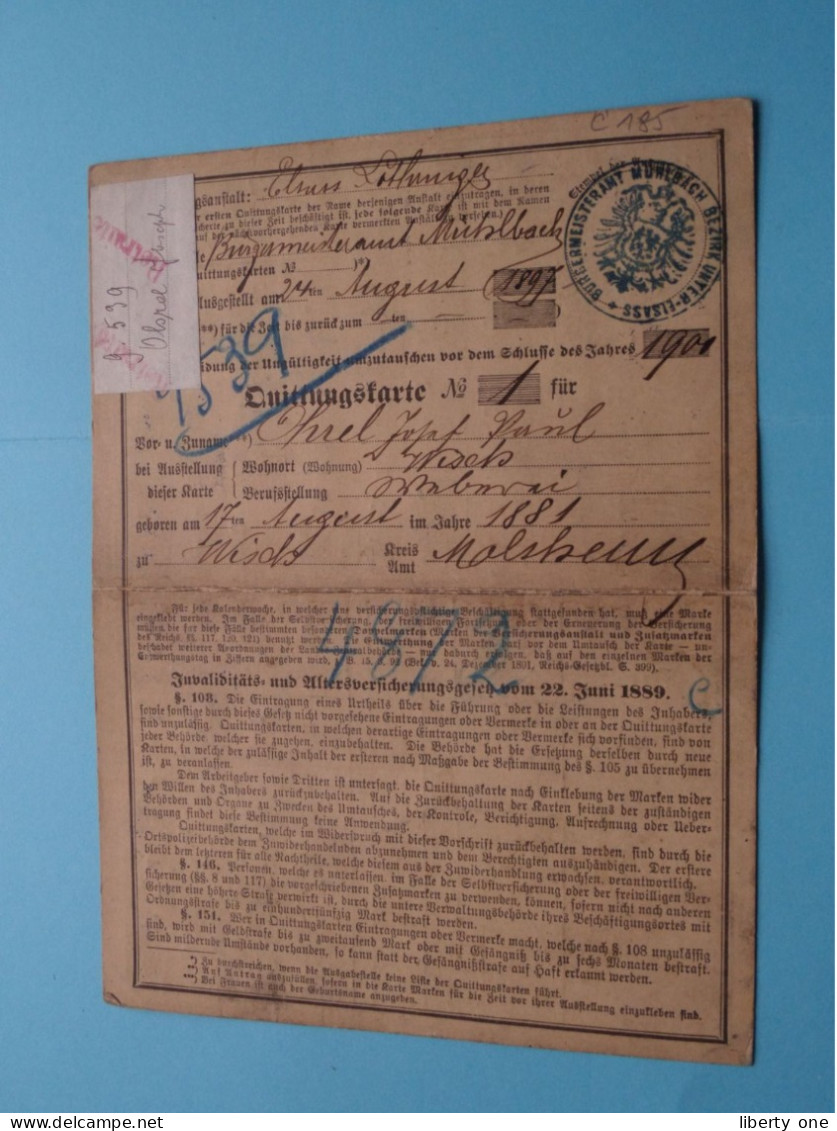 C 185
gsanstalt: Elsass Lothringen
er ersten Quittungskarte der Name derjenigen Anstalt einzutragen, in deren
cherte zu dieser Zeit beschäftigt ist, jede folgende Karte ist mit dem Namen
auf der vorhergehenden Karte vermerkten Anstalt zu versehen.)
Bürgermeisteramt Mühlbach
BÜRGERMEISTERAMT MÜHLBACH BEZIRK UNTER-ELSASS
Quittungskarten № )*)
Ausgestellt am 24ten August 1897
**) für die Zeit bis zurück zum ten )
dung der Ungültigkeit umzutauschen vor dem Schlusse des Jahres 1901
9539
g 539
Joseph
Quittungskarte № 1 für
Vor- u. Zuname***) Ohrel Josef Paul
bei Ausstellung Wohnort (Wohnung) Wisch
dieser Karte Berufsstellung Weberei
geboren am 17ten August im Jahre 1881
zu Wisch Kreis Amt Molsheim
Für jede Kalenderwoche, in welcher eine versicherungspflichtige Beschäftigung stattgefunden hat, muß eine Marke
eingeklebt werden. Im Falle der Selbstversicherung, der freiwilligen Fortsetzung oder der Erneuerung der Versicherung
müssen die für diese Fälle bestimmten besonderen Doppelmarken (Marken der Versicherungsanstalt und Zusatzmarken
des Reichs, §§. 117, 120, 121) benutzt werden. Die Entwerthung der Marken darf vor dem Umtausch der Karte – un-
beschadet weiterer Anordnungen der Landes-Zentralbehörden – nur dadurch erfolgen, daß auf den einzelnen Marken der
Entwerthungstag in Ziffern angegeben wird, z. B. 15. (Bek. v. 24. Dezember 1891, Reichs-Gesetzbl. S. 399).
4872
C
Invaliditäts- und Altersversicherungsgesetz vom 22. Juni 1889.
§. 108. Die Eintragung eines Urtheils über die Führung oder die Leistungen des Inhabers,
sowie sonstige durch dieses Gesetz nicht vorgesehene Eintragungen oder Vermerke in oder an der Quittungskarte
sind unzulässig. Quittungskarten, in welchen derartige Eintragungen oder Vermerke sich vorfinden, sind von
jeder Behörde, welcher sie zugehen, einzubehalten. Die Behörde hat die Ersetzung derselben durch neue
Karten, in welche der zulässige Inhalt der ersteren nach Maßgabe der Bestimmung des §. 105 zu übernehmen
ist, zu veranlassen.
Dem Arbeitgeber sowie Dritten ist untersagt, die Quittungskarte nach Einklebung der Marken wider
den Willen des Inhabers zurückzubehalten. Auf die Zurückbehaltung der Karten seitens der zuständigen
Behörden und Organe zu Zwecken des Umtausches, der Kontrole, Berichtigung, Aufrechnung oder Ueber-
tragung findet diese Bestimmung keine Anwendung.
Quittungskarten, welche im Widerspruch mit dieser Vorschrift zurückbehalten werden, sind durch die
Ortspolizeibehörde dem Zuwiderhandelnden abzunehmen und dem Berechtigten auszuhändigen. Der erstere
bleibt dem letzteren für alle Nachtheile, welche diesem aus der Zuwiderhandlung erwachsen, verantwortlich.
§. 146. Personen, welche es unterlassen, im Falle der Selbstversicherung oder der freiwilligen Ver-
sicherung (§§. 8 und 117) die vorgeschriebenen Zusatzmarken zu verwenden, können, sofern nicht nach anderen
Gesetzen eine höhere Strafe verwirkt ist, durch die untere Verwaltungsbehörde ihres Beschäftigungsortes mit
Ordnungsstrafe bis zu einhundertfünfzig Mark bestraft werden.
§. 151. Wer in Quittungskarten Eintragungen oder Vermerke macht, welche nach §. 108 unzulässig
sind, wird mit Geldstrafe bis zu zweitausend Mark oder mit Gefängniß bis zu sechs Monaten bestraft.
Sind mildernde Umstände vorhanden, so kann statt der Gefängnißstrafe auf Haft erkannt werden.
*) Zu durchstreichen, wenn die Ausgabestelle keine Liste der Quittungskarten führt.
**) Auf Antrag auszufüllen, sofern in die Karte Marken für die Zeit vor ihrer Ausstellung einzukleben sind.
***) Bei Frauen ist auch der Geburtsname anzugeben.
liberty one